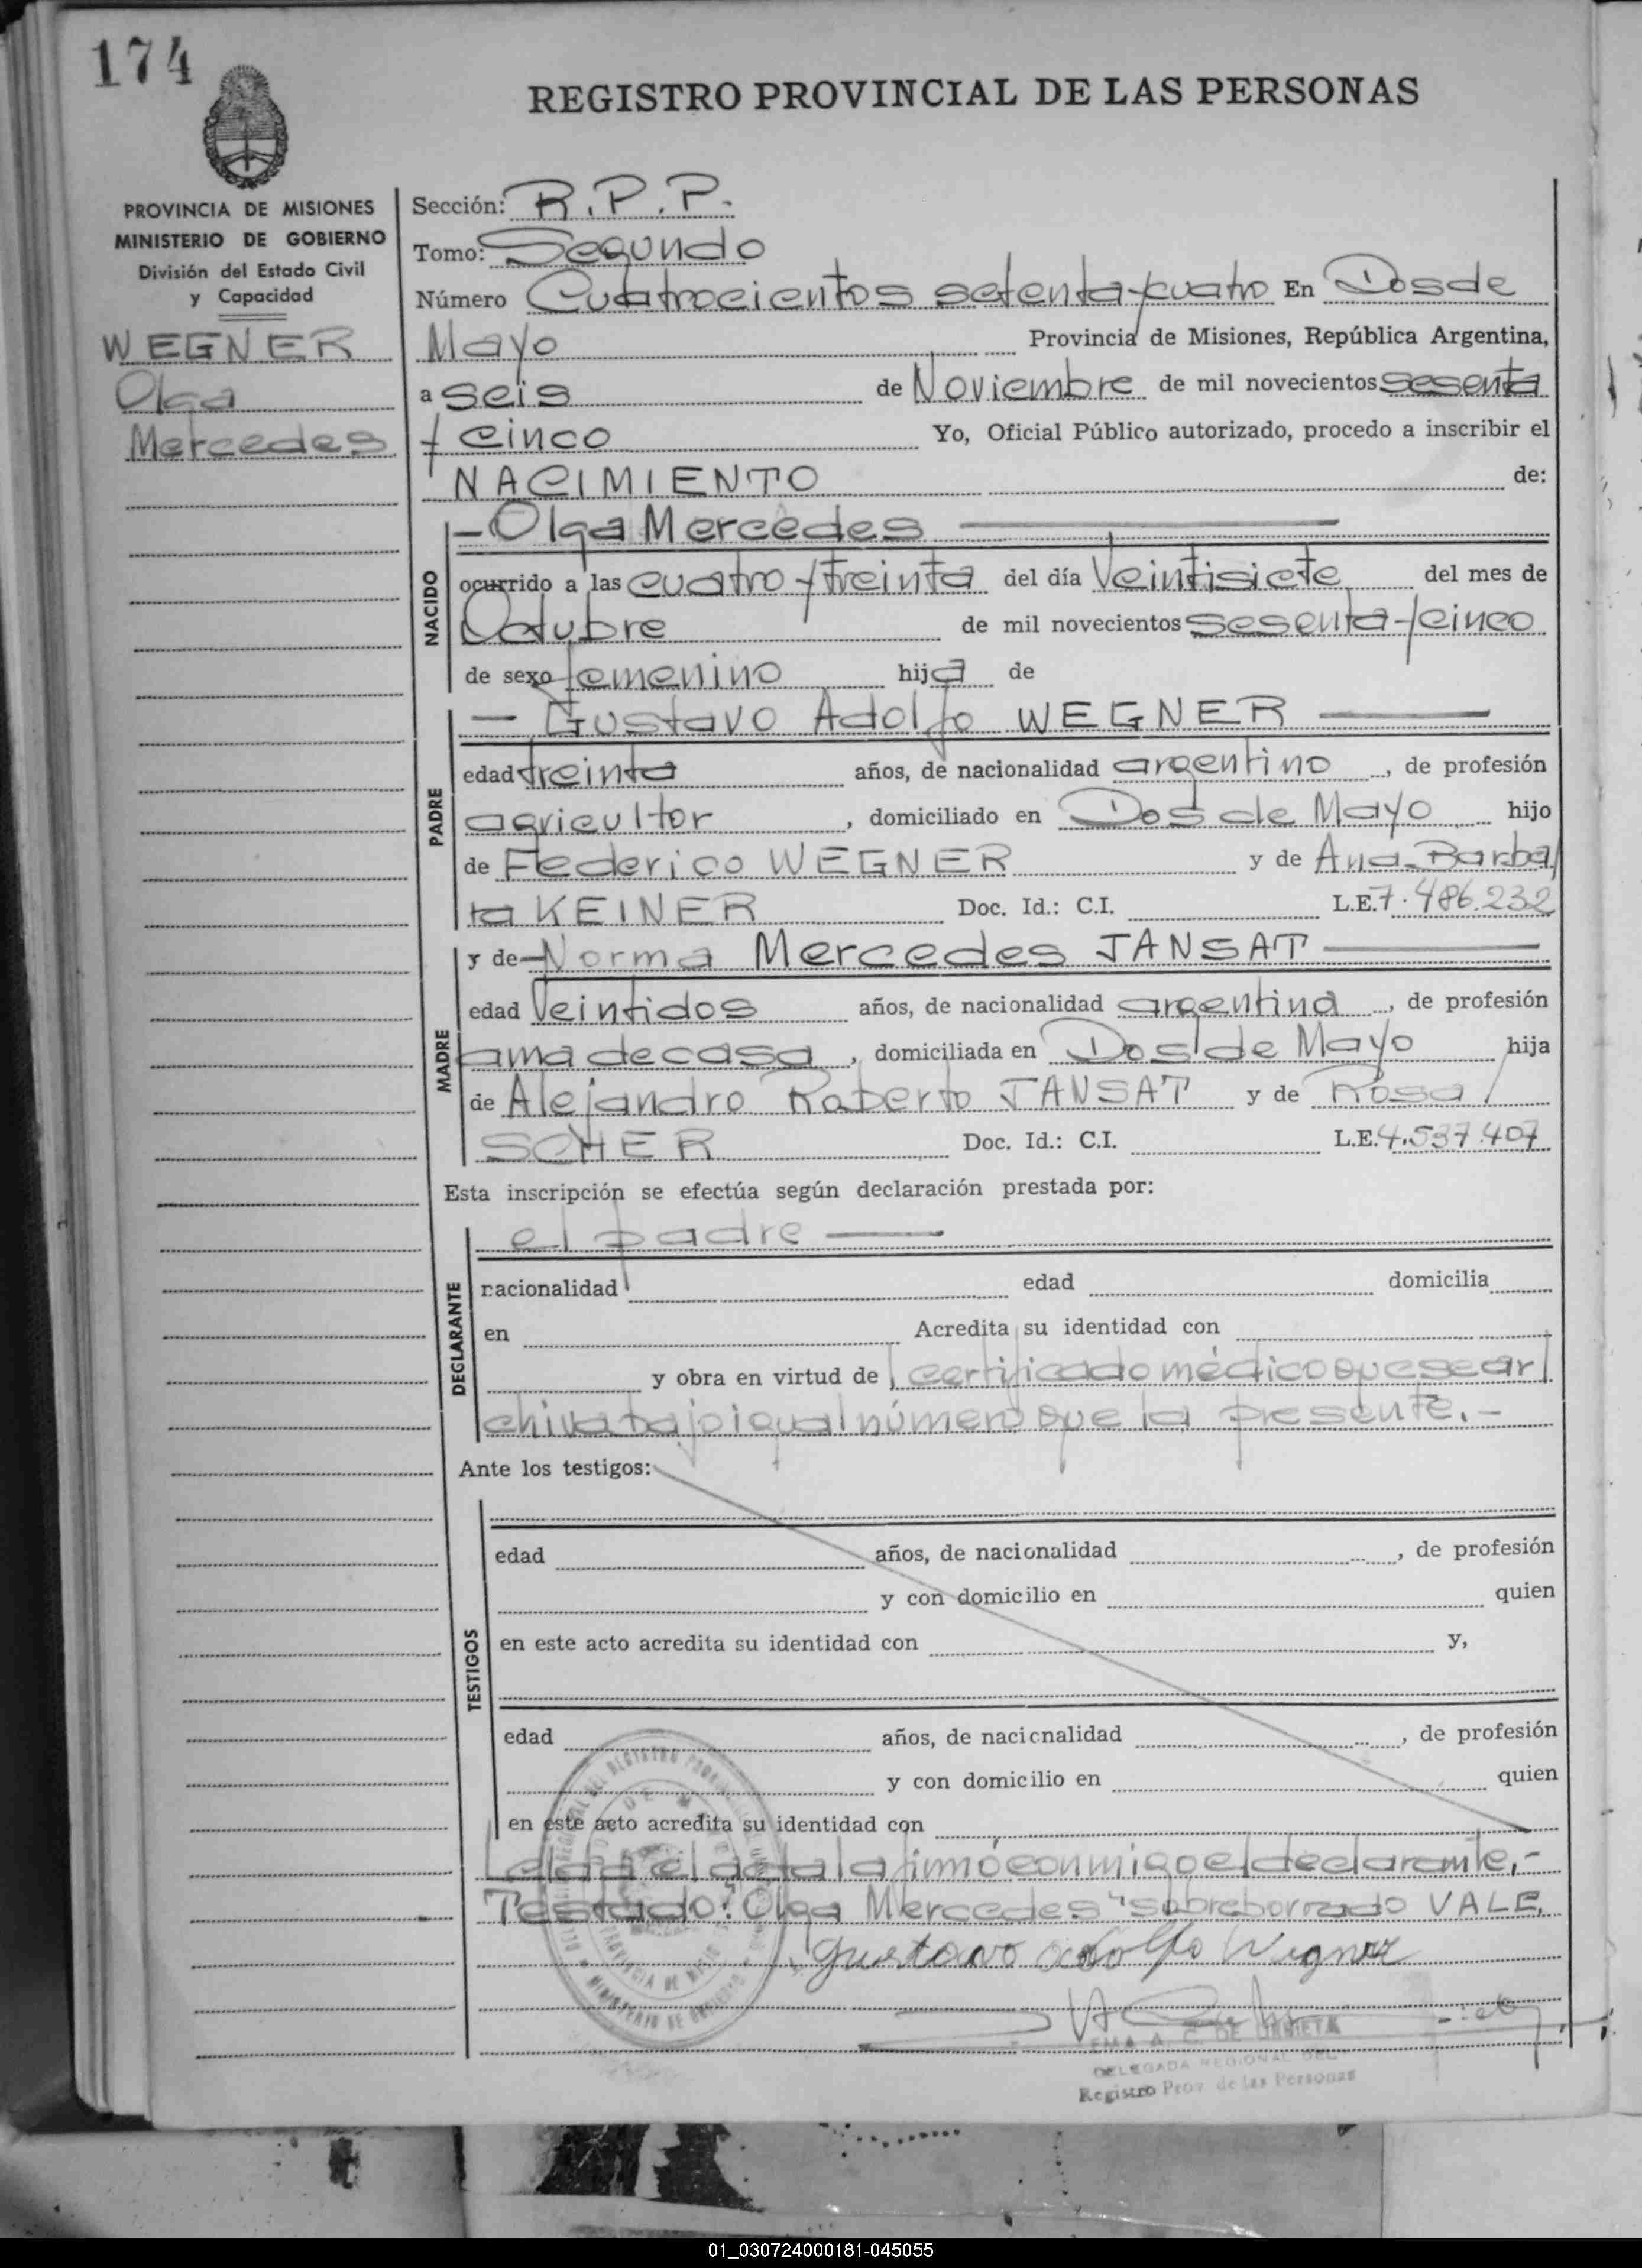 174
REGISTRO PROVINCIAL DE LAS PERSONAS
PROVINCIA DE MISIONES
MINISTERIO DE GOBIERNO
División del Estado Civil
y Capacidad
WEGNER
Olga
Mercedes
Sección: R.P.P.
Tomo: Segundo
Número Cuatrocientos setenta y cuatro En Dos de
Mayo Provincia de Misiones, República Argentina,
a seis de Noviembre de mil novecientos sesenta
y cinco Yo, Oficial Público autorizado, procedo a inscribir el
NACIMIENTO de:
NACIDO
- Olga Mercedes
ocurrido a las cuatro y treinta del día Veintisiete del mes de
Octubre de mil novecientos sesenta y cinco
de sexo femenino hija de
PADRE
- Gustavo Adolfo WEGNER
edad treinta años, de nacionalidad argentino, de profesión
agricultor, domiciliado en Dos de Mayo hijo
de Federico WEGNER y de Ana Barba/
ra KEINER Doc. Id.: C.I. L.E. 7.486.232
MADRE
y de - Norma Mercedes JANSAT
edad Veintidos años, de nacionalidad argentina, de profesión
ama de casa, domiciliada en Dos de Mayo hija
de Alejandro Roberto JANSAT y de Rosa /
SCHER Doc. Id.: C.I. L.E. 4.537.407
Esta inscripción se efectúa según declaración prestada por:
DECLARANTE
el padre
nacionalidad edad domicilia
en Acredita su identidad con
y obra en virtud de certificado médico que se ar/
chiva bajo igual número que la presente.-
Ante los testigos:
TESTIGOS
edad años, de nacionalidad , de profesión
y con domicilio en quien
en este acto acredita su identidad con y,
edad años, de nacionalidad , de profesión
y con domicilio en quien
en este acto acredita su identidad con
Leida el acta la firmó conmigo el declarante.-
Testado: "Olga Mercedes" sobreborrado VALE.
Gustavo Adolfo Wegner
DELEGADA REGIONAL DEL
Registro Prov de las Personas
01_030724000181-045055